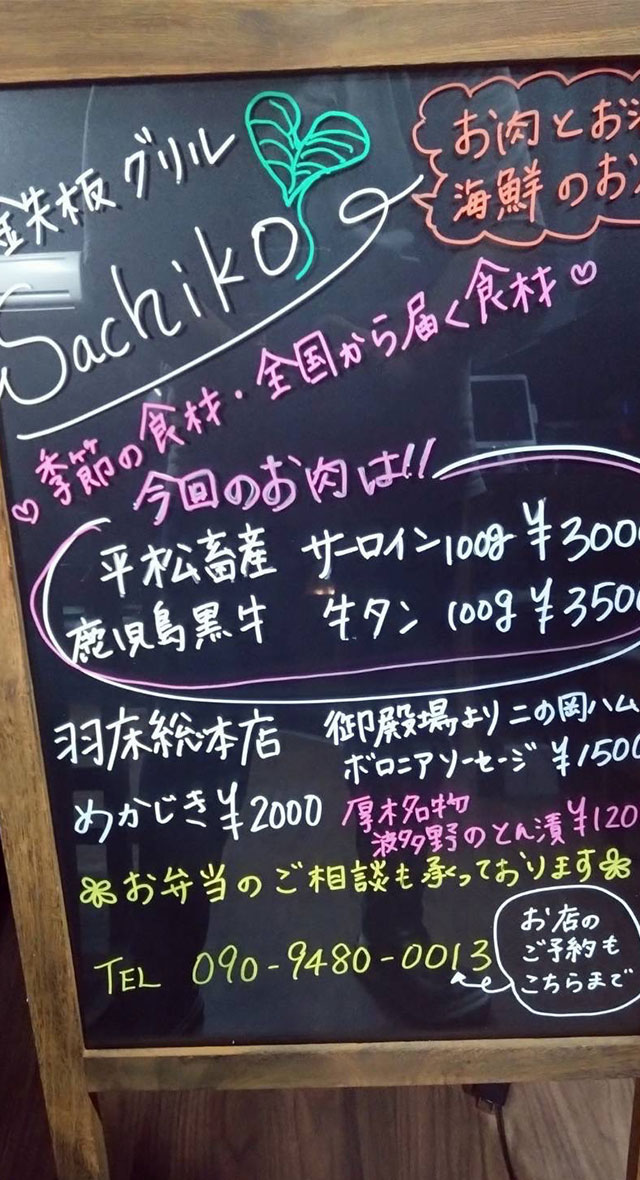 鉄板グリル
Sachiko
お肉とお
海鮮のお
季節の食材・全国から届く食材
今回のお肉は!!
平松畜産 サーロイン100g ¥3000
鹿児島黒牛 牛タン 100g ¥3500
羽床総本店
めかじき ¥2000
御殿場より二の岡ハム
ボロニアソーセージ ¥1500
厚木名物
波多野のとん漬 ¥120
お弁当のご相談も承っております
TEL 090-9480-0013
お店の
ご予約も
こちらまで